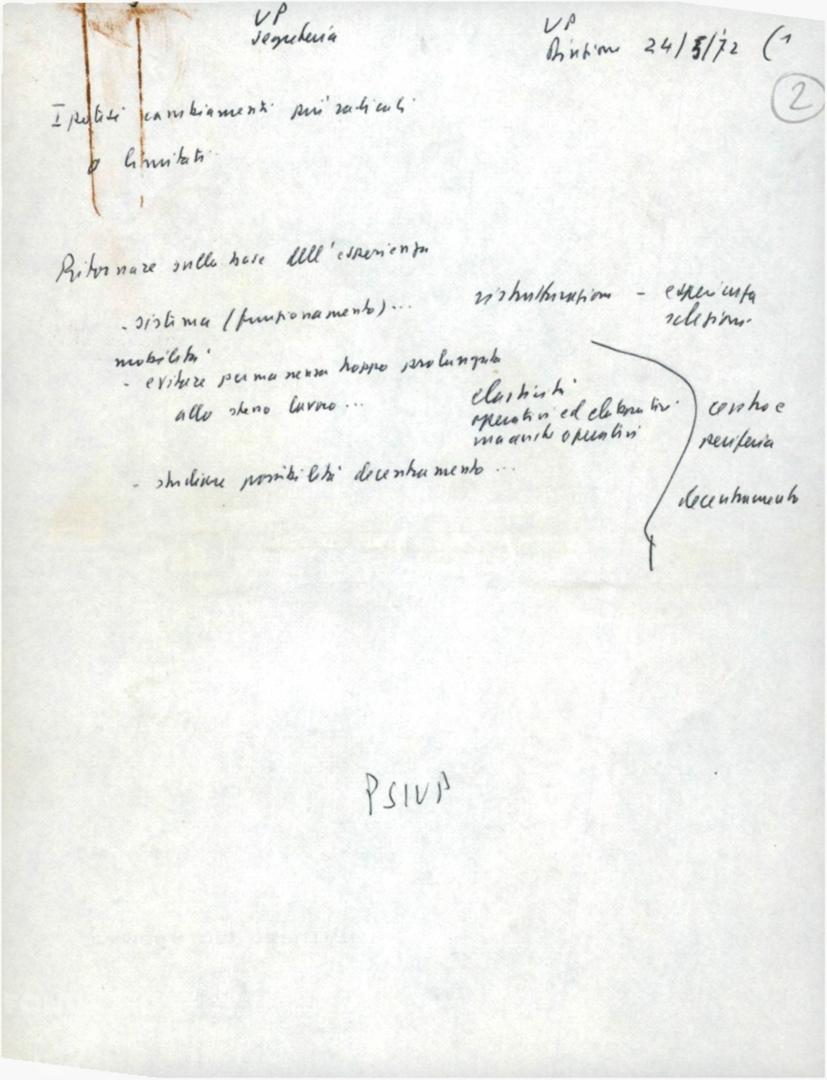 UP
segreteria
UP
Direzione 24/5/72 (1
2
Ipotesi cambiamenti più radicali
o limitati
Ritornare sulla base dell'esperienza
- sistema (funzionamento)...
ristrutturazione - esperienza
mobilità
- evitare permanenza troppo prolungata
allo stesso lavoro...
elasticità
operativi ed elaborativi
ma anche operativi
centro e
periferia
- studiare possibilità decentramento...
decentramento
PSIUP